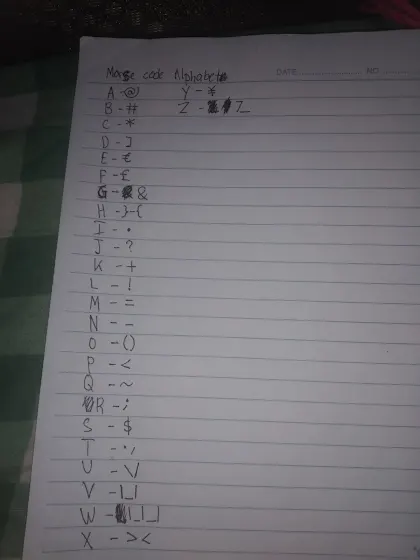 Morse code Alphabets
DATE NO
A - @ Y - ¥
B - # Z - 7_
C - *
D - ]
E - €
F - £
G - &
H - }-{
I - •
J - ?
K - +
L - !
M - =
N - –
O - ()
P - <
Q - ~
R - ;
S - $
T - •,
U - \/
V - |_|
W - |_|_|
X - ><